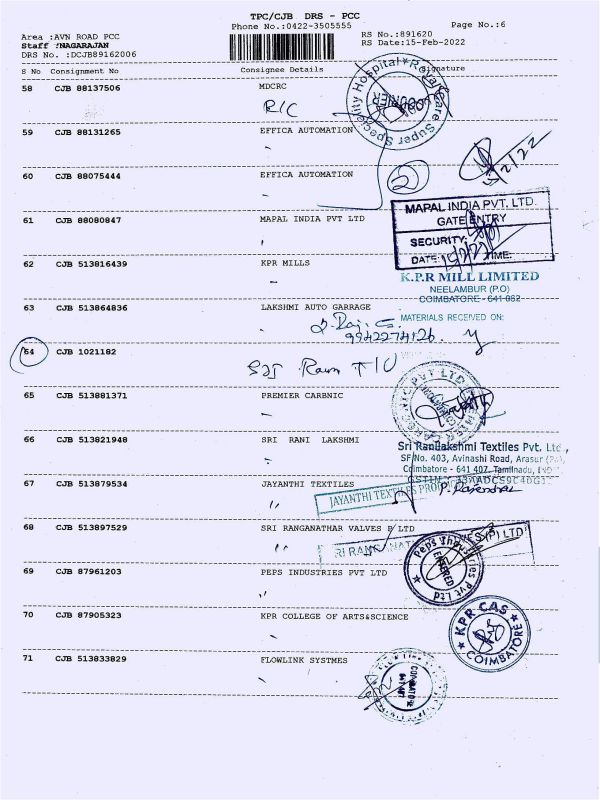 TPC/CJB DRS - PCC
Phone No.:0422-3505555
Page No.:6
Area :AVN ROAD PCC
RS No.:891620
Staff :NAGARAJAN
RS Date:15-Feb-2022
DRS No. :DCJB89162006
S No Consignment No Consignee Details Signature
58 CJB 88137506 MDCRC
R/C
Royal Care Super Speciality Hospital
COURIER
59 CJB 88131265 EFFICA AUTOMATION
60 CJB 88075444 EFFICA AUTOMATION
2
61 CJB 88080847 MAPAL INDIA PVT LTD
MAPAL INDIA PVT. LTD.
GATE ENTRY
SECURITY:
DATE: TIME:
62 CJB 513816439 KPR MILLS
K.P.R MILL LIMITED
NEELAMBUR (P.O)
COIMBATORE - 641 062
63 CJB 513864836 LAKSHMI AUTO GARRAGE
MATERIALS RECEIVED ON:
9942274126
64 CJB 1021182
65 CJB 513881371 PREMIER CARBNIC
66 CJB 513821948 SRI RANI LAKSHMI
Sri Ranilakshmi Textiles Pvt. Ltd.,
SF No. 403, Avinashi Road, Arasur
Coimbatore - 641 407. Tamilnadu,
67 CJB 513879534 JAYANTHI TEXTILES
JAYANTHI TEXTILES
P. Rajendran
68 CJB 513897529 SRI RANGANATHAR VALVES P LTD
69 CJB 87961203 PEPS INDUSTRIES PVT LTD
Peps Industries Pvt Ltd
ENTERED
70 CJB 87905323 KPR COLLEGE OF ARTS&SCIENCE
KPR CAS
COIMBATORE
71 CJB 513833829 FLOWLINK SYSTMES
COIMBATORE